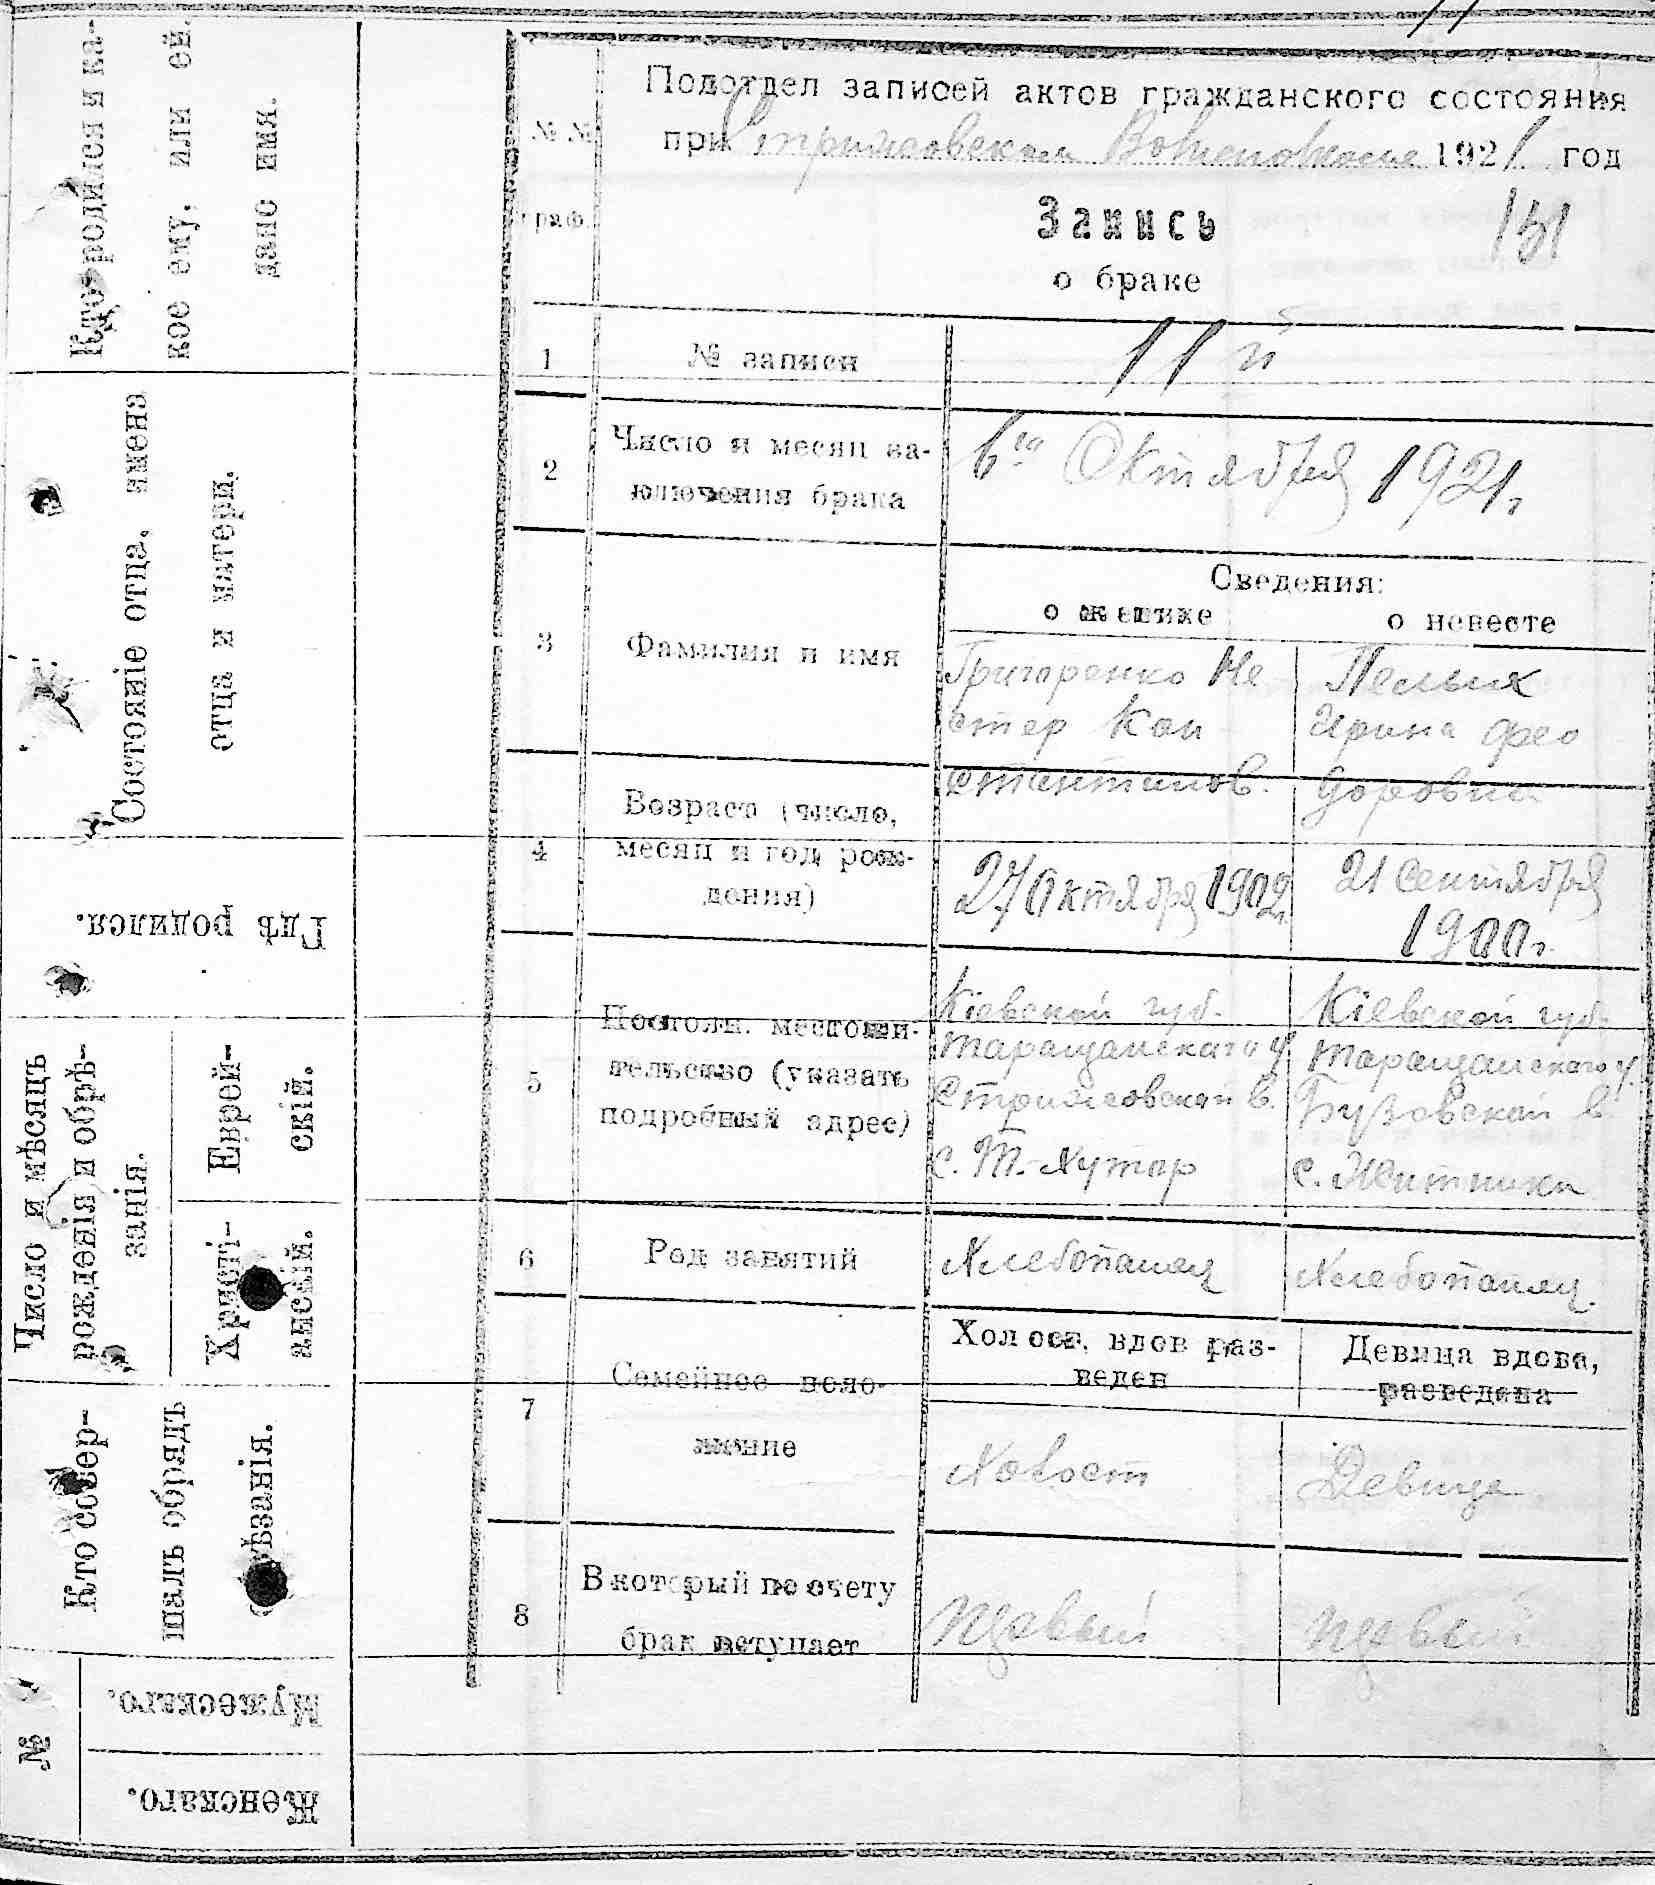 Кто родился и ка-
кое ему, или ей,
дано имя.
Состоянiе отца, имена
отца и матери.
Гдѣ родился.
Число и мѣсяцъ
рожденiя и обрѣ-
занiя.
Еврей-
скiй.
Христi-
анскiй.
Кто совер-
шалъ обрядъ
обрѣзанiя.
№
Мужескаго.
Женскаго.
№№
граф.
Подотдел записей актов гражданского состояния
при Стрижовском 1921 год
Запись
151
о браке
1 № записи 11й
2 Число и месяц за-
ключения брака
6го Октября 1921г.
Сведения:
о женихе о невесте
3 Фамилия и имя
Григоренко Не
стер Кон
стантинов.
Пелых
Ирина Фео
доровна
4 Возраст (число,
месяц и год рож-
дения)
27 Октября 1902г.
21 Сентября
1900г.
5 Постоян. местожи-
тельство (указать
подробный адрес)
Кiевской губ.
Таращанского у
Стрижовской в.
с. Т.-Хутор
Кiевской губ.
Таращанского у.
Бузовской в.
с. Житники
6 Род занятий Хлебопашец Хлебопашец.
7 Семейное поло-
жение
Холост, вдов раз-
веден
Девица вдова,
разведена
Холост Девица
8 В который по счету
брак вступает
первый первый